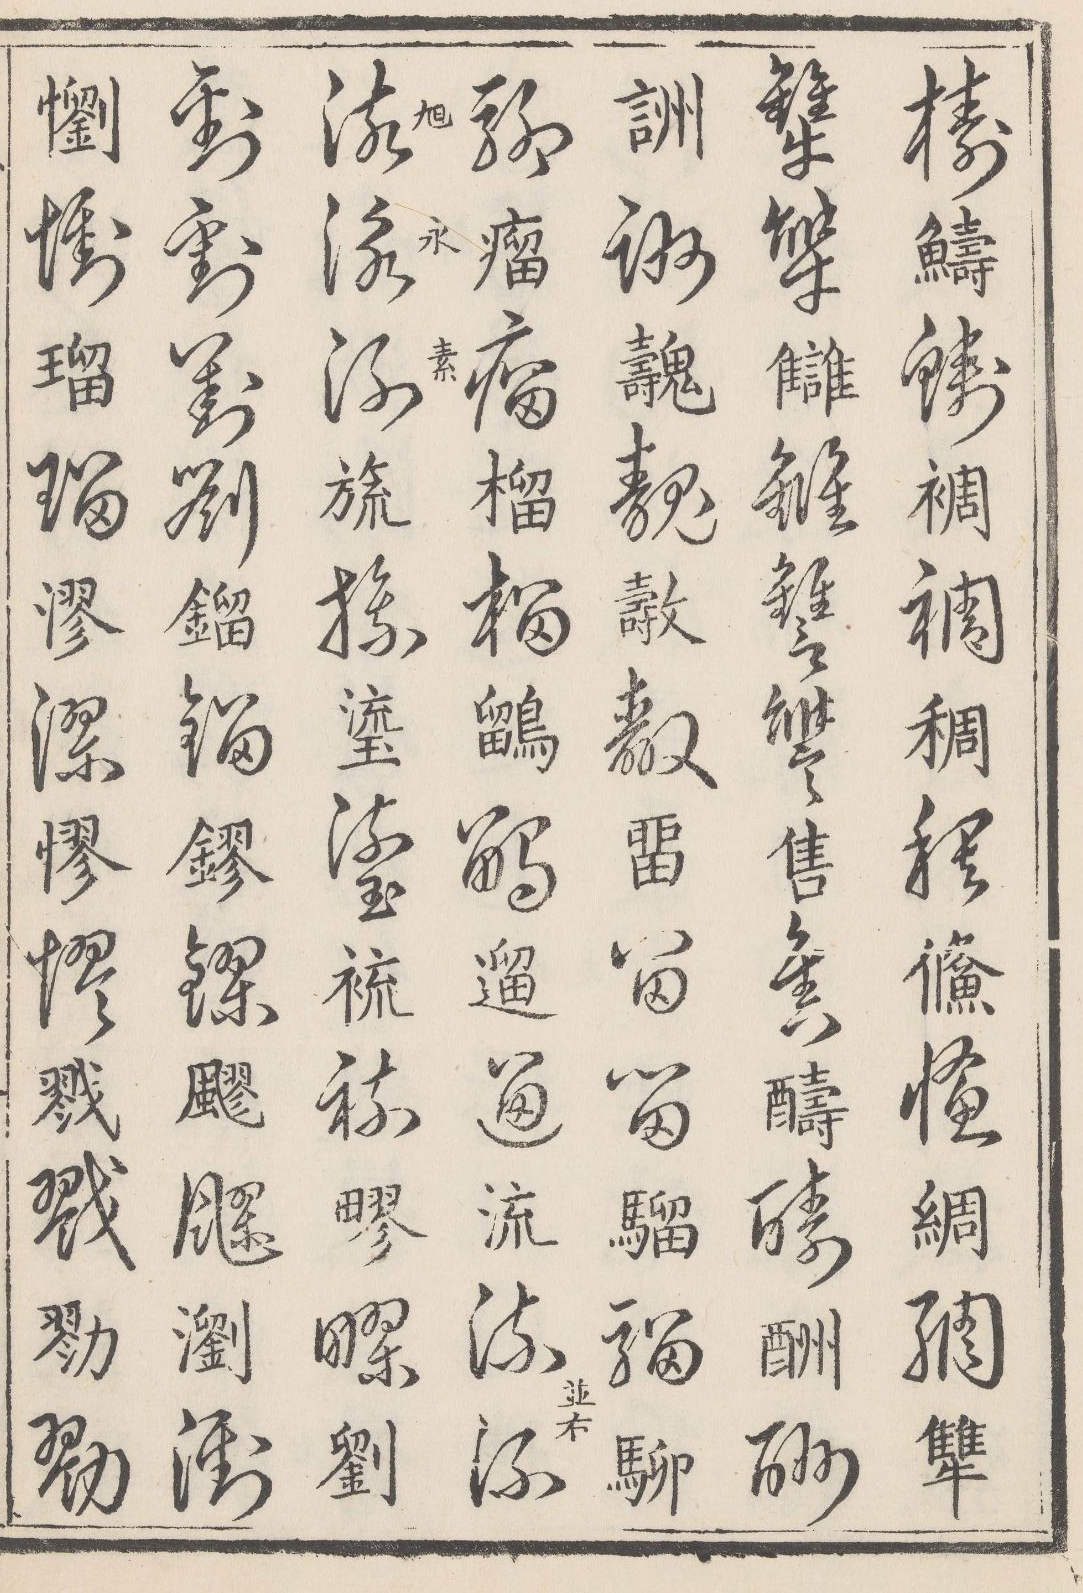 檮裯裯稠稠儵儵綢綢犨
犨犨讎讎讐讐售售醻醻酬酬
詶詶魗魗畱留留騮騮駵
駵瘤瘤榴榴鶹鶹遛遛流流流並右
流旭流永流素旒旒瑬瑬裗裗疁疁劉
劉劉劉劉鎦鎦鏐鏐飂飂瀏瀏
懰懰瑠瑠漻漻憀憀戮戮勠勠